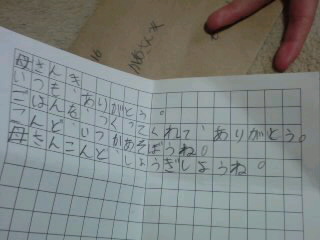 母さん
いつも、ありがとう。
ごはんを、つくってくれて、ありがとう。
こんど、いつかあそぼうね。
母さんこんどしょうぎしようね。